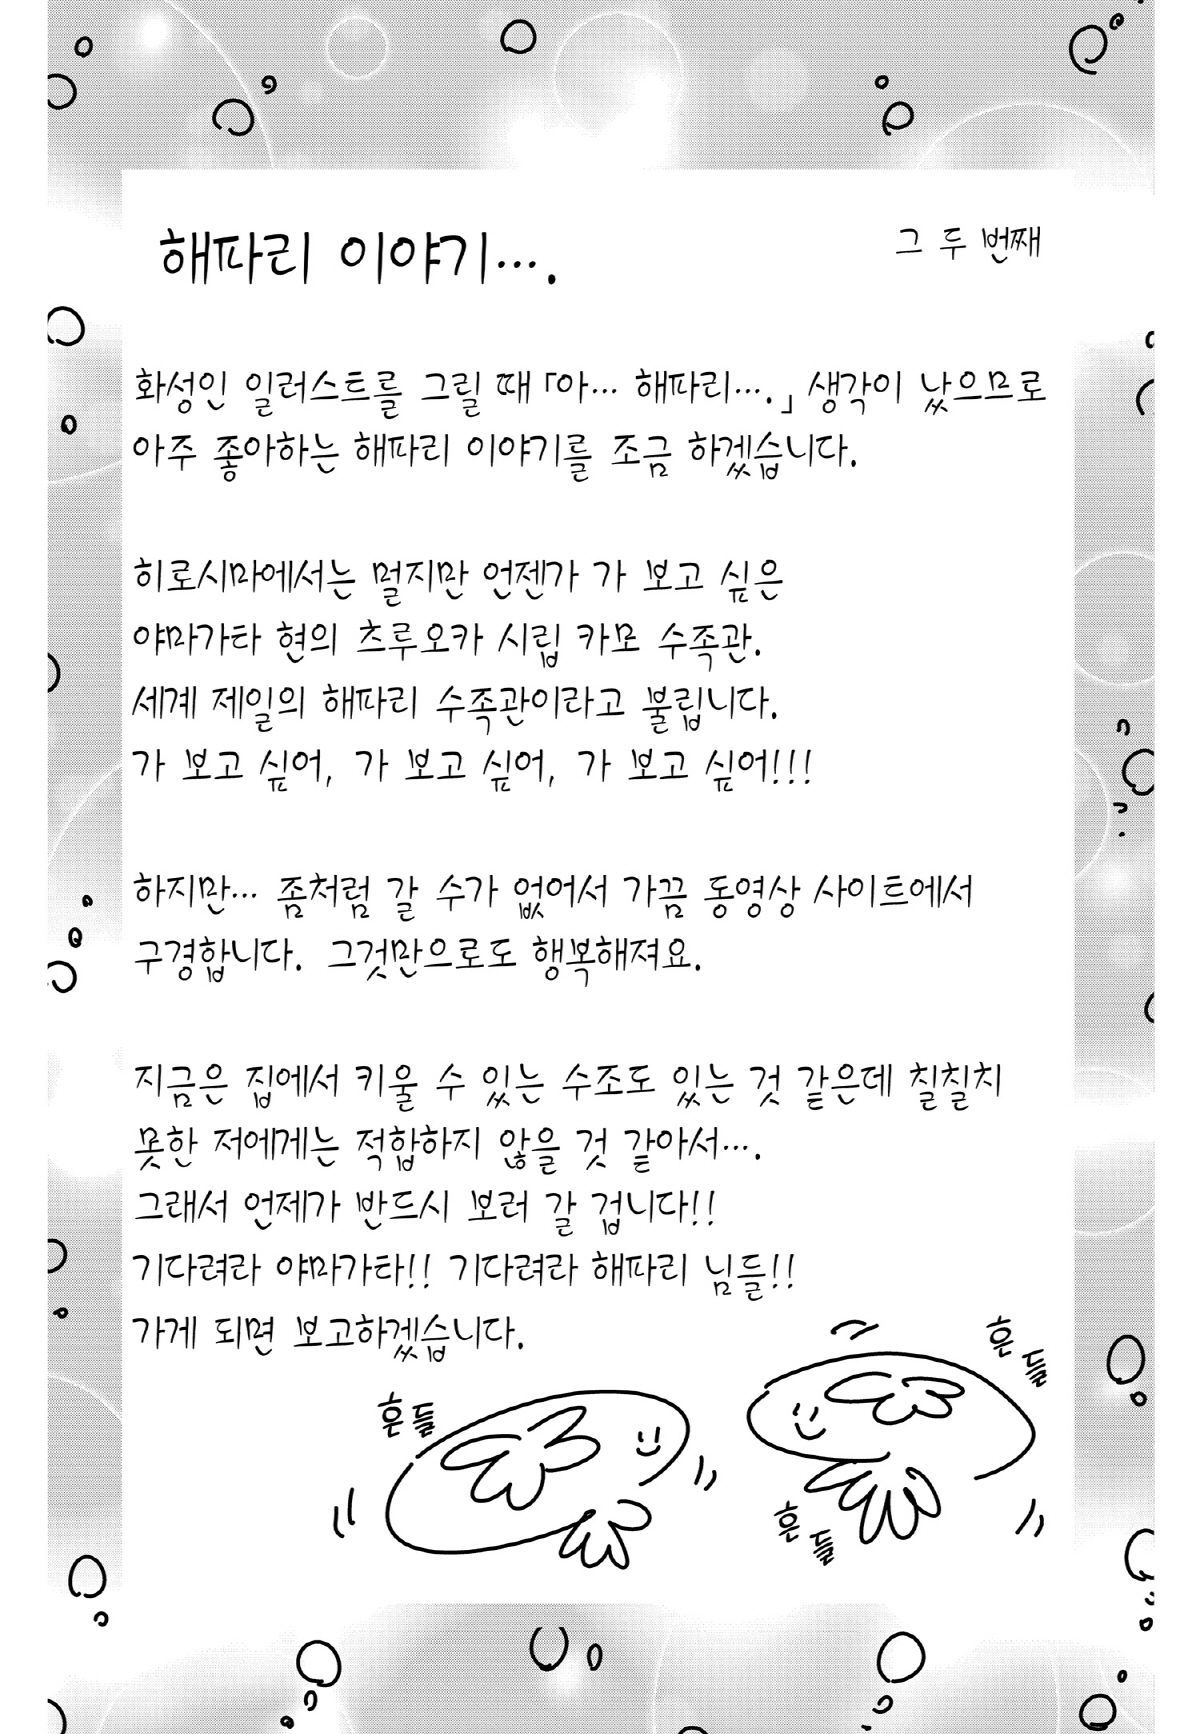 해파리 이야기….
그 두 번째
화성인 일러스트를 그릴 때 「아… 해파리….」 생각이 났으므로
아주 좋아하는 해파리 이야기를 조금 하겠습니다.
히로시마에서는 멀지만 언젠가 가 보고 싶은
야마가타 현의 츠루오카 시립 카모 수족관.
세계 제일의 해파리 수족관이라고 불립니다.
가 보고 싶어, 가 보고 싶어, 가 보고 싶어!!!
하지만… 좀처럼 갈 수가 없어서 가끔 동영상 사이트에서
구경합니다. 그것만으로도 행복해져요.
지금은 집에서 키울 수 있는 수조도 있는 것 같은데 칠칠치
못한 저에게는 적합하지 않을 것 같아서….
그래서 언제가 반드시 보러 갈 겁니다!!
기다려라 야마가타!! 기다려라 해파리 님들!!
가게 되면 보고하겠습니다.
흔들
흔들
흔들